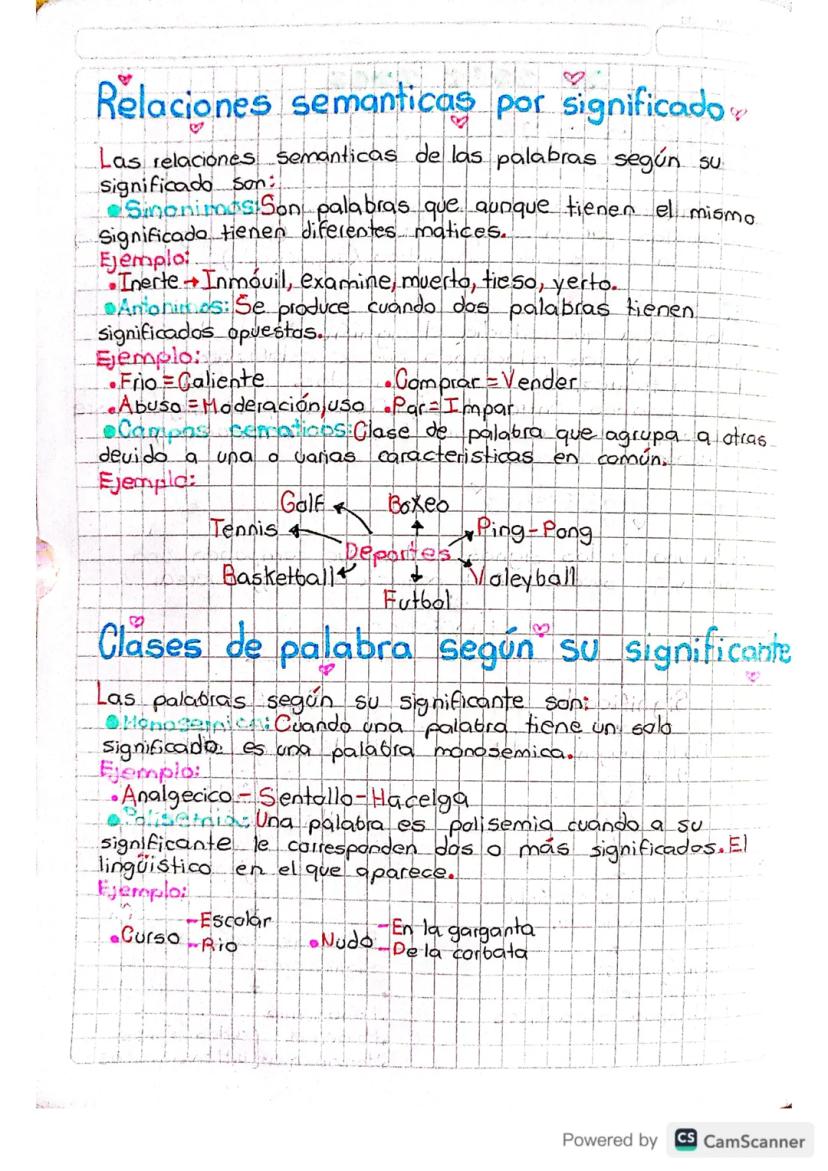 Relaciones semanticas por significado
Las relaciones semanticas de las palabras según su
significado son:
Sinonimos: Son palabras que aunque tienen el mismo
significado tienen diferentes matices.
Ejemplo:
Inerte → Inmóvil, examine, muerto, tieso, yerto.
Antonimos: Se produce cuando dos palabras tienen
significados opuestos.
Ejemplo:
Frio = Caliente
Comprar = Vender
Abuso = Moderación, uso
Par = Impar
Campos cematicos: Clase de palabra que agrupa a otras
devido a una o varias caracteristicas en común.
Ejemplo:
Golf
Boxeo
Tennis
Ping-Pong
Deportes
Basketball
Voleyball
Futbol
Clases de palabra según su significante
Las palabras según su significante son:
Monosemica: Cuando una palabra tiene un solo
significado es una palabra monosemica.
Ejemplo:
Analgecico - Sentollo - Hacelga
Polisemia: Una palabra es polisemia cuando a su
significante le corresponden dos o más significados. El
lingüistico en el que aparece.
Ejemplo:
- Escolar
Curso - Rio
- En la garganta
Nudo - De la corbata
Powered by CS CamScanner